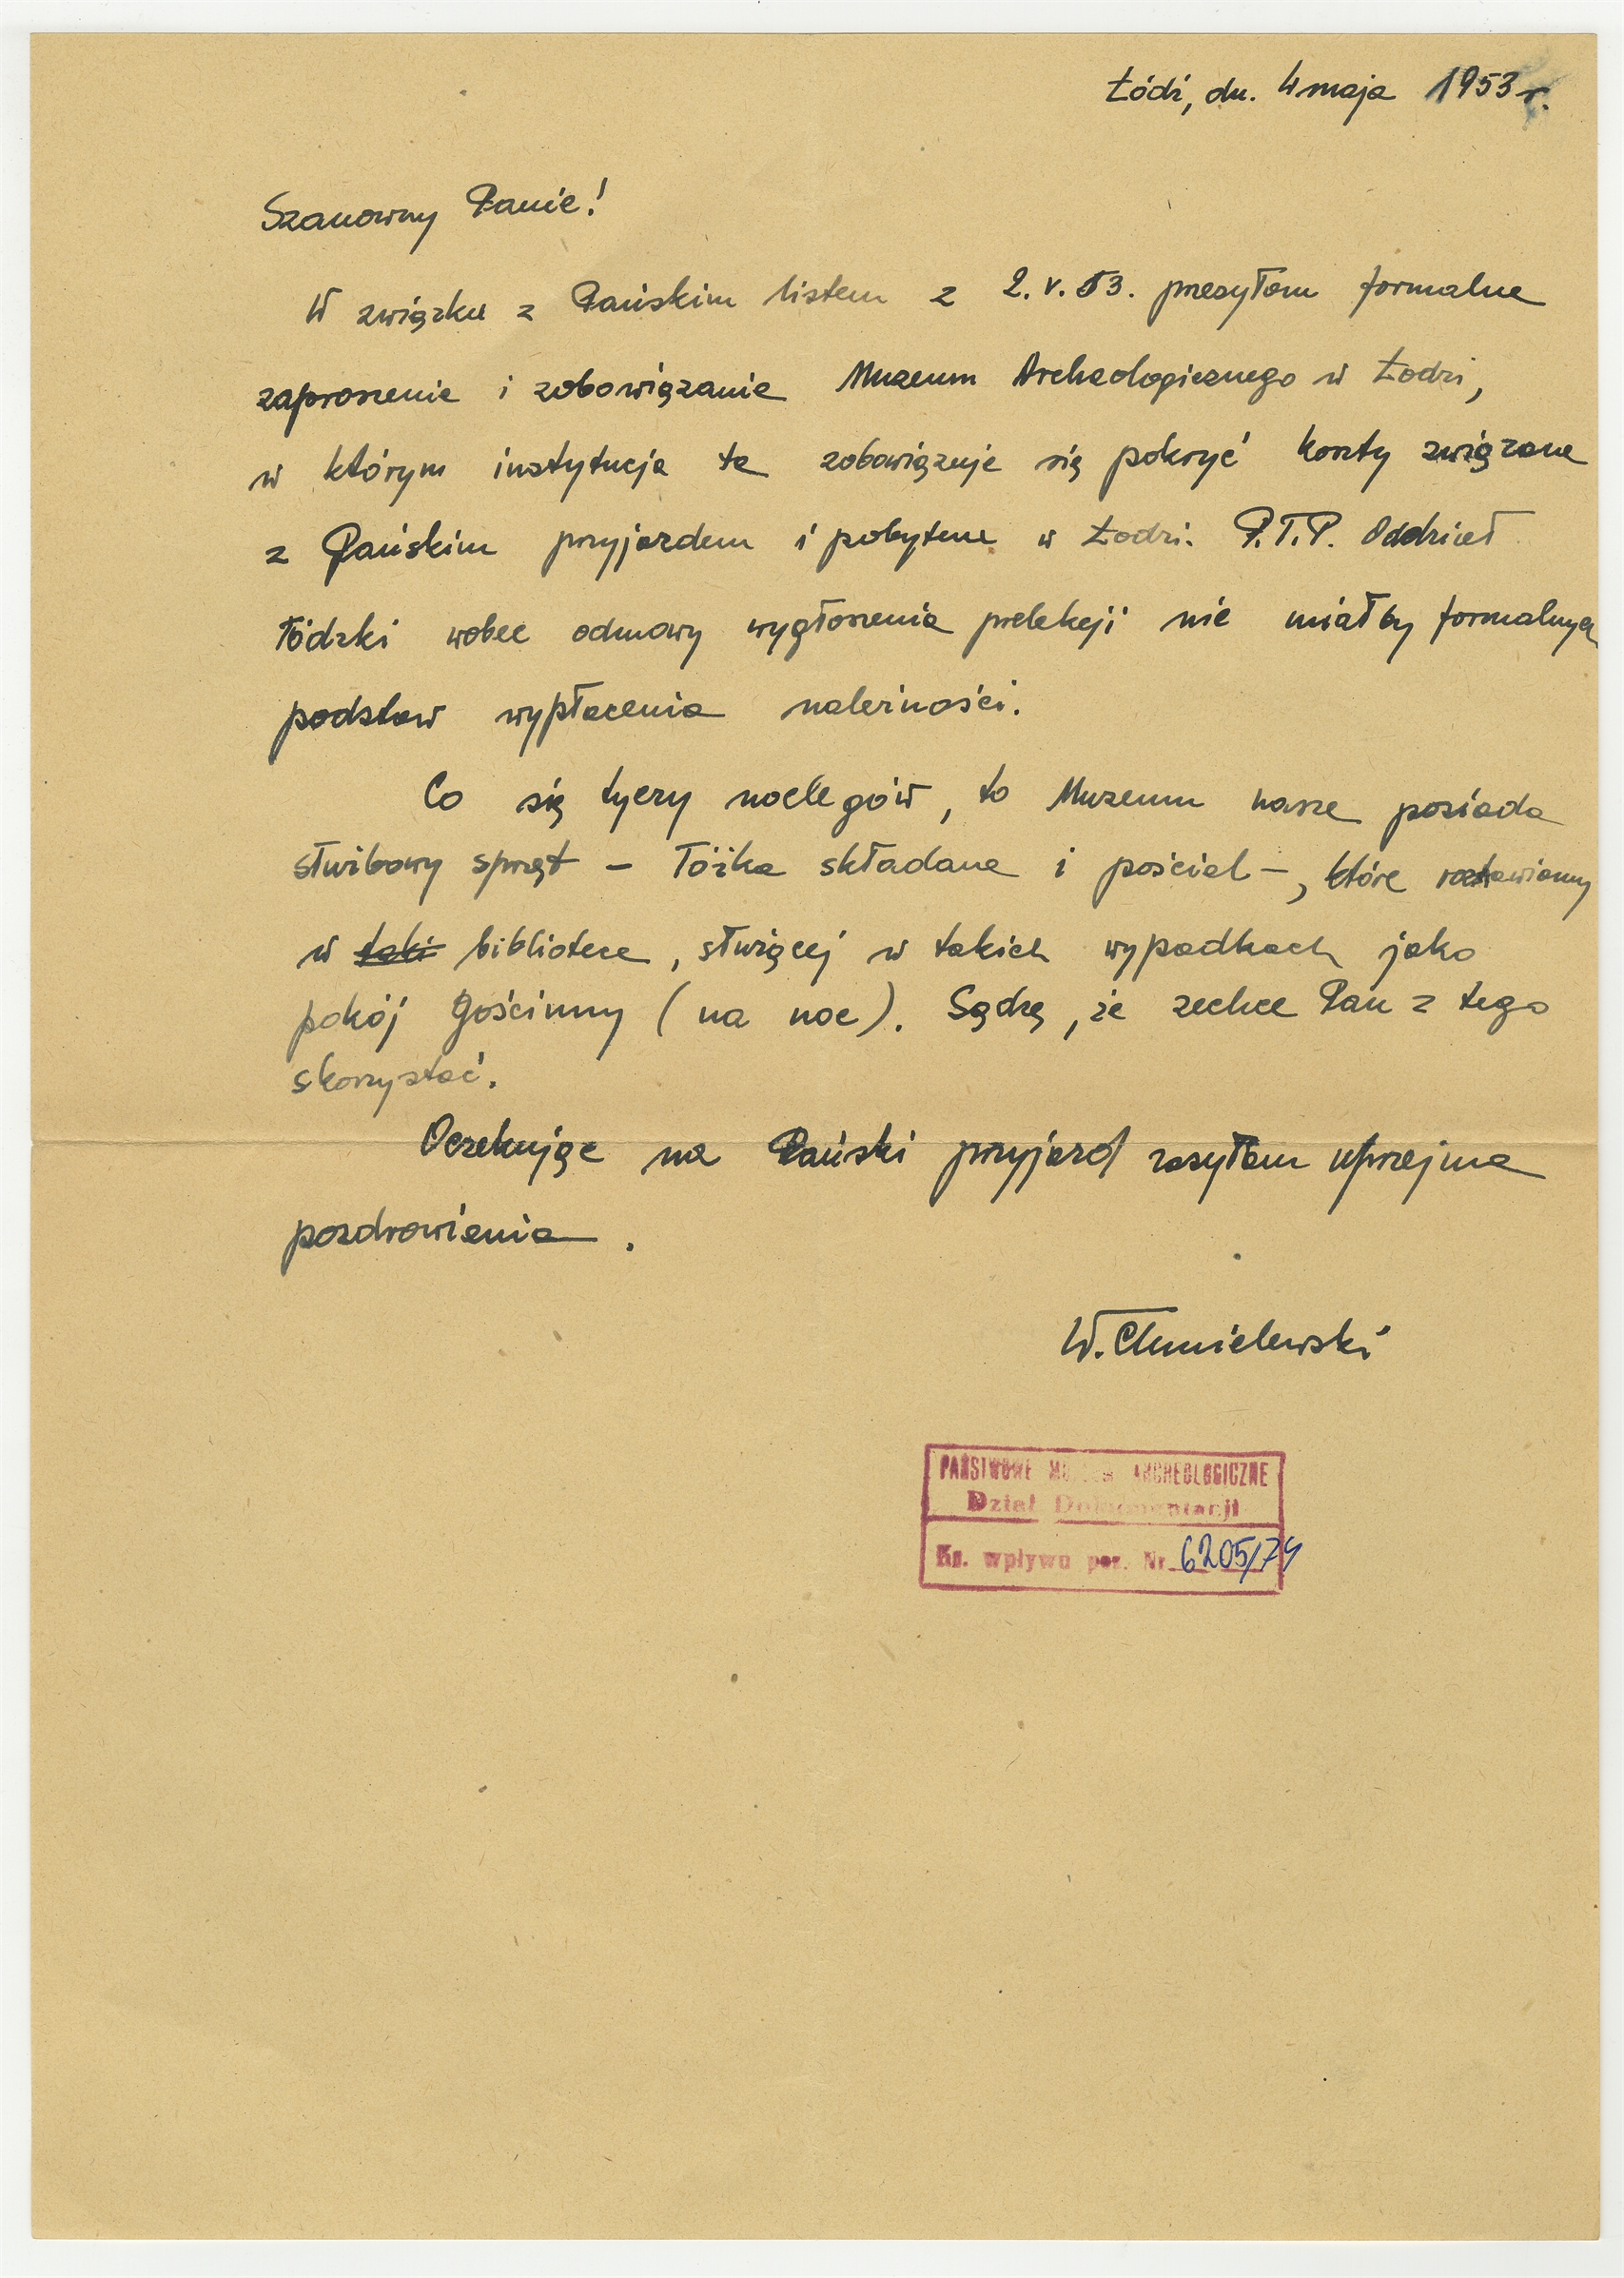 Łódź, dn. 4 maja 1953 r.
Szanowny Panie!
W związku z Pańskim listem z 2.V.53. przesyłam formalne
zaproszenie i zobowiązanie Muzeum Archeologicznego w Łodzi,
w którym instytucja ta zobowiązuje się pokryć koszty związane
z Pańskim przyjazdem i pobytem w Łodzi. P.T.P. Oddział
Łódzki wobec odmowy wygłoszenia prelekcji nie miałby formalnych
podstaw wypłacenia należności.
Co się tyczy noclegów, to Muzeum nasze posiada
służbowy sprzęt – łóżka składane i pościel –, które rozstawiamy
w taki bibliotece, służącej w takich wypadkach jako
pokój gościnny (na noc). Sądzę, że zechce Pan z tego
skorzystać.
Oczekując na Pański przyjazd zasyłam uprzejme
pozdrowienia.
W. Chmielewski
PAŃSTWOWE MUZEUM ARCHEOLOGICZNE
Dział Dokumentacji
Ks. wpływu poz. Nr 6205/74